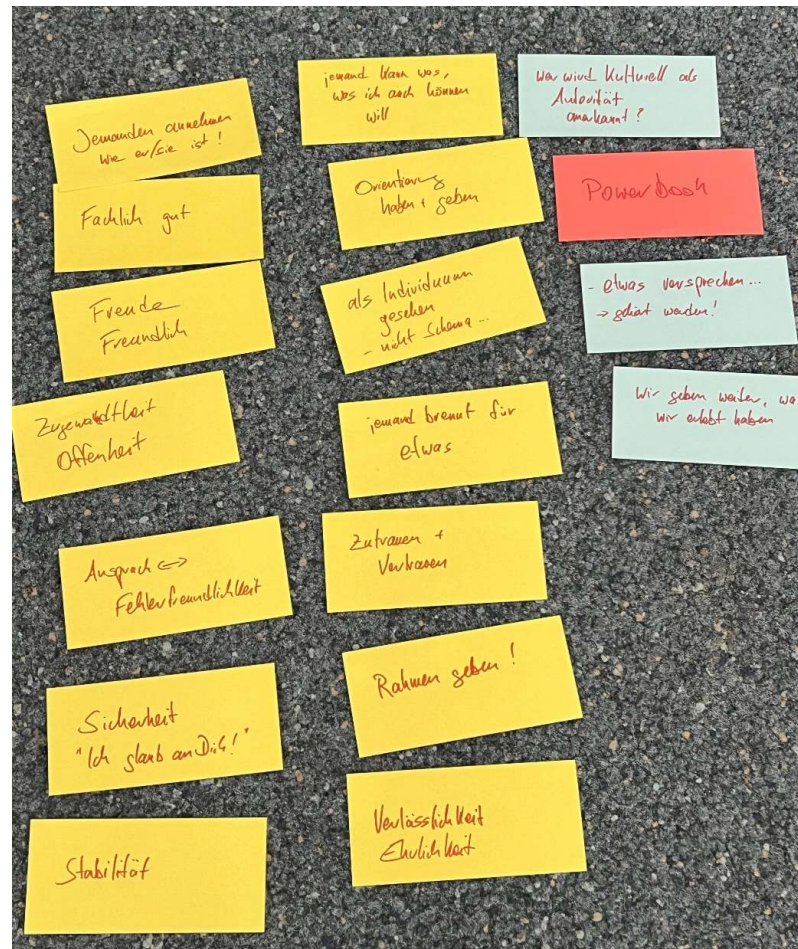 Jemanden annehmen
wie er/sie ist!
Fachlich gut
Freude
Freundlich
Zugewandtheit
Offenheit
Anspruch <->
Fehlerfreundlichkeit
Sicherheit
"Ich glaub an Dich!"
Stabilität
jemand kann was,
was ich auch können
will
Orientierung
haben + geben
als Individuum
gesehen
- nicht Schema...
jemand brennt für
etwas
Zutrauen +
Vertrauen
Rahmen geben!
Verlässlichkeit
Ehrlichkeit
Wer wird kulturell als
Autorität
anerkannt?
Powerbook
- etwas versprechen...
Wir geben weiter, wa
wir erlebt haben